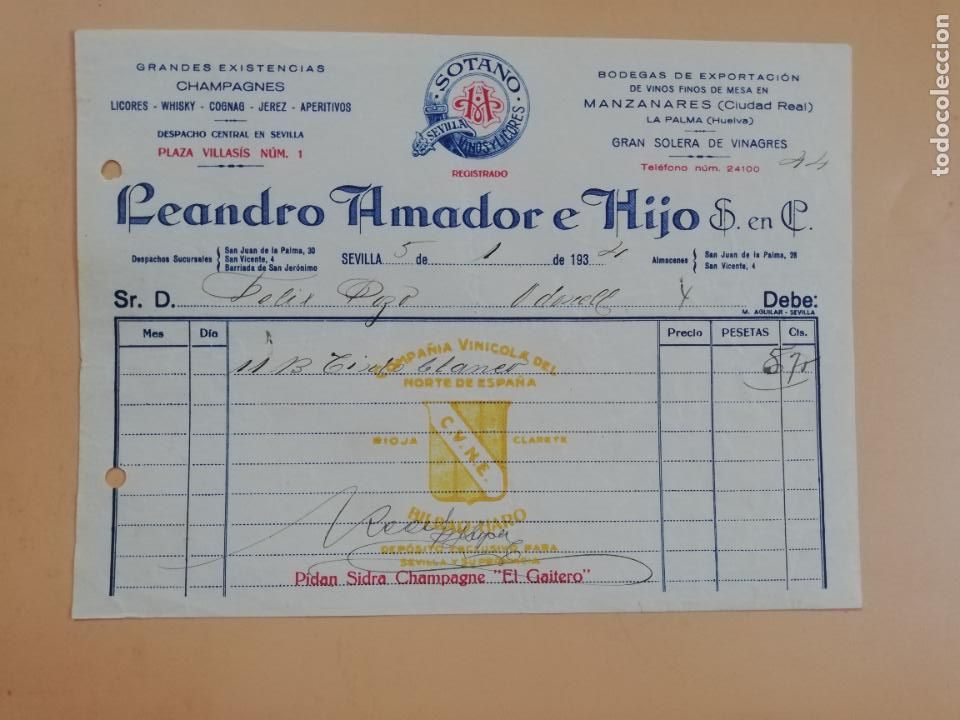 GRANDES EXISTENCIAS
CHAMPAGNES
LICORES - WHISKY - COGNAG - JEREZ - APERITIVOS
DESPACHO CENTRAL EN SEVILLA
PLAZA VILLASÍS NÚM. 1
SOTANO
H
SEVILLA
VINOS Y LICORES
REGISTRADO
BODEGAS DE EXPORTACIÓN
DE VINOS FINOS DE MESA EN
MANZANARES (Ciudad Real)
LA PALMA (Huelva)
GRAN SOLERA DE VINAGRES
Teléfono núm. 24100
Leandro Amador e Hijo S. en C.
Despachos Sucursales
San Juan de la Palma, 30
San Vicente, 4
Barriada de San Jerónimo
SEVILLA 5 de 1 de 1934
Almacenes
San Juan de la Palma, 28
San Vicente, 4
Sr. D. Felix Pozo Debe:
M. AGUILAR - SEVILLA
Mes Día Precio PESETAS Cts.
11 B blanco
COMPAÑIA VINICOLA DEL
NORTE DE ESPAÑA
RIOJA CLARETE
C.V.N.E.
BILBAO-HARO
DEPÓSITO EXCLUSIVO PARA
SEVILLA Y SU PROVINCIA
Pidan Sidra Champagne "El Gaitero"
todocoleccion